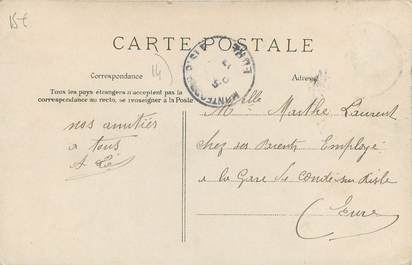 15€
CARTE POSTALE
Correspondance
14
Adresse
Tous les pays étrangers n'acceptent pas la
correspondance au recto, se renseigner à la Poste
EURE
nos amitiés
a tous
Mlle Marthe Laurent
chez ses Parents Employé
a la Gare de Condé sur Risle
Eure